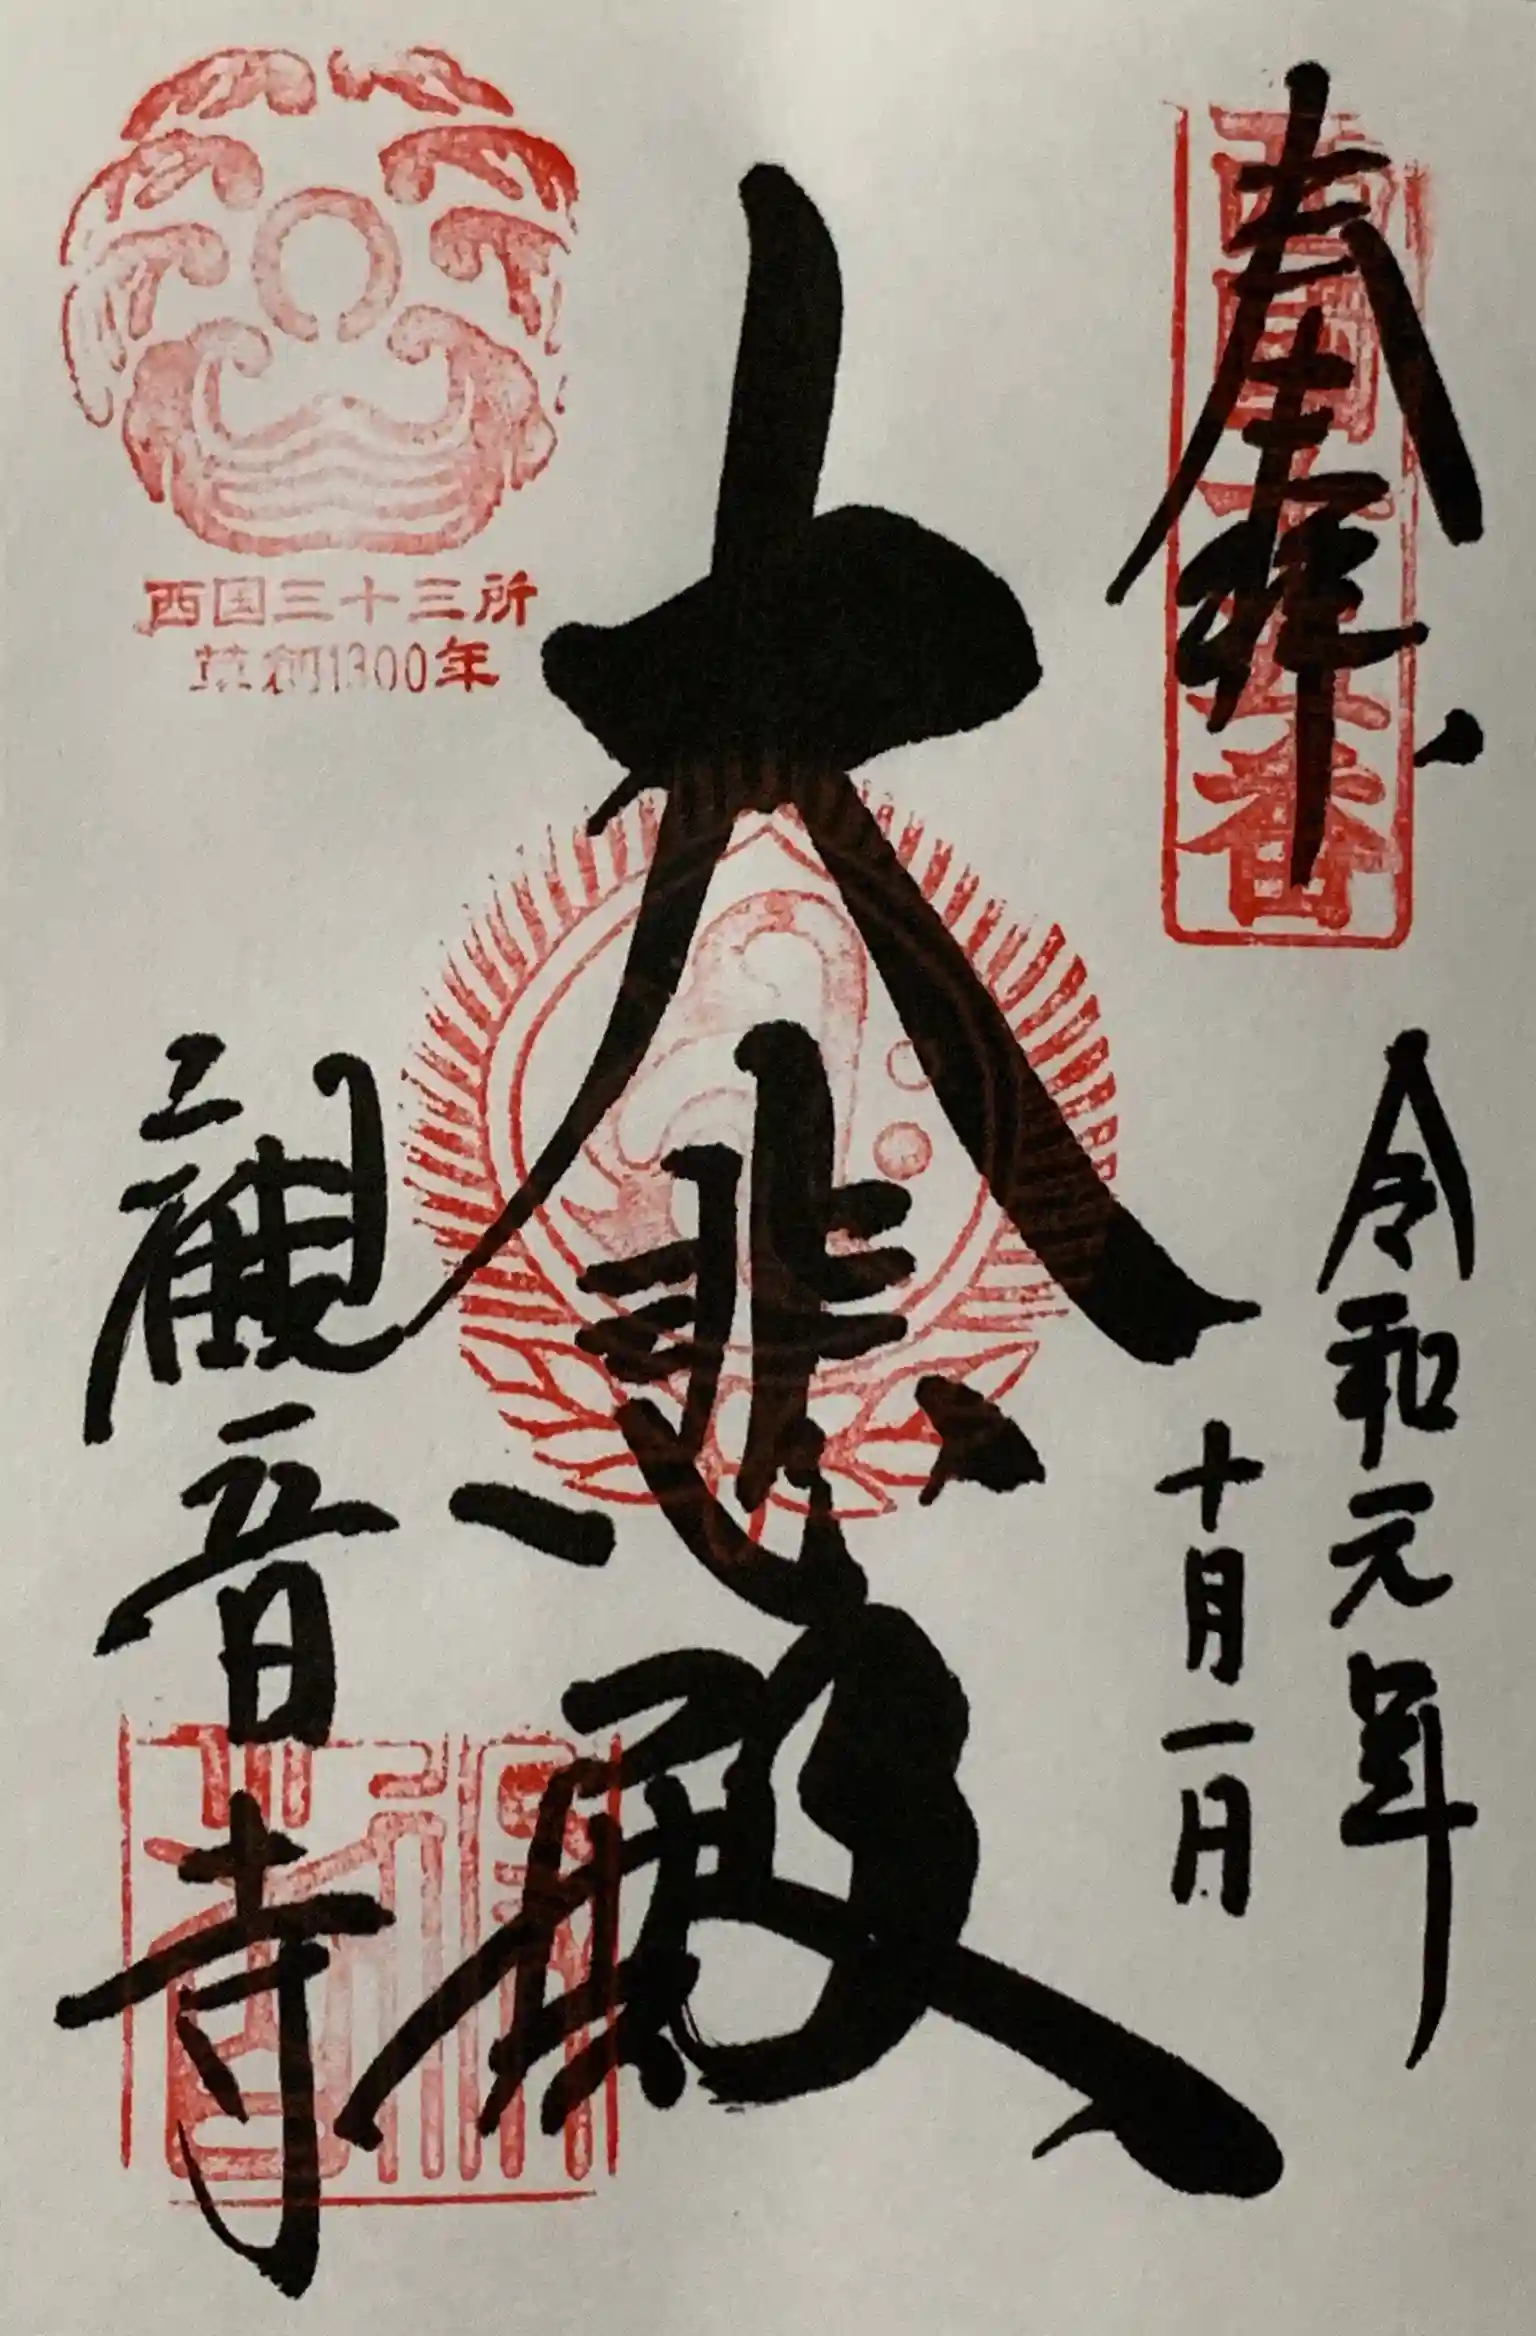 奉拝
西国十五番
令和元年
十月一日
大悲殿
觀音寺
西国三十三所
草創1300年